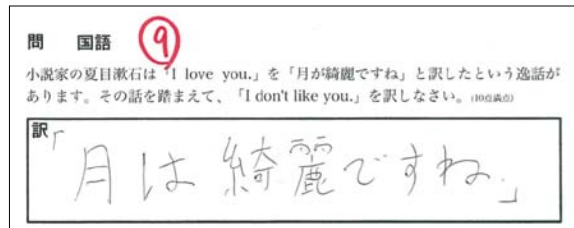 問 国語 9
小説家の夏目漱石は「I love you.」を「月が綺麗ですね」と訳したという逸話が
あります。その話を踏まえて、「I don't like you.」を訳しなさい。(10点満点)
訳「月は綺麗ですね.」